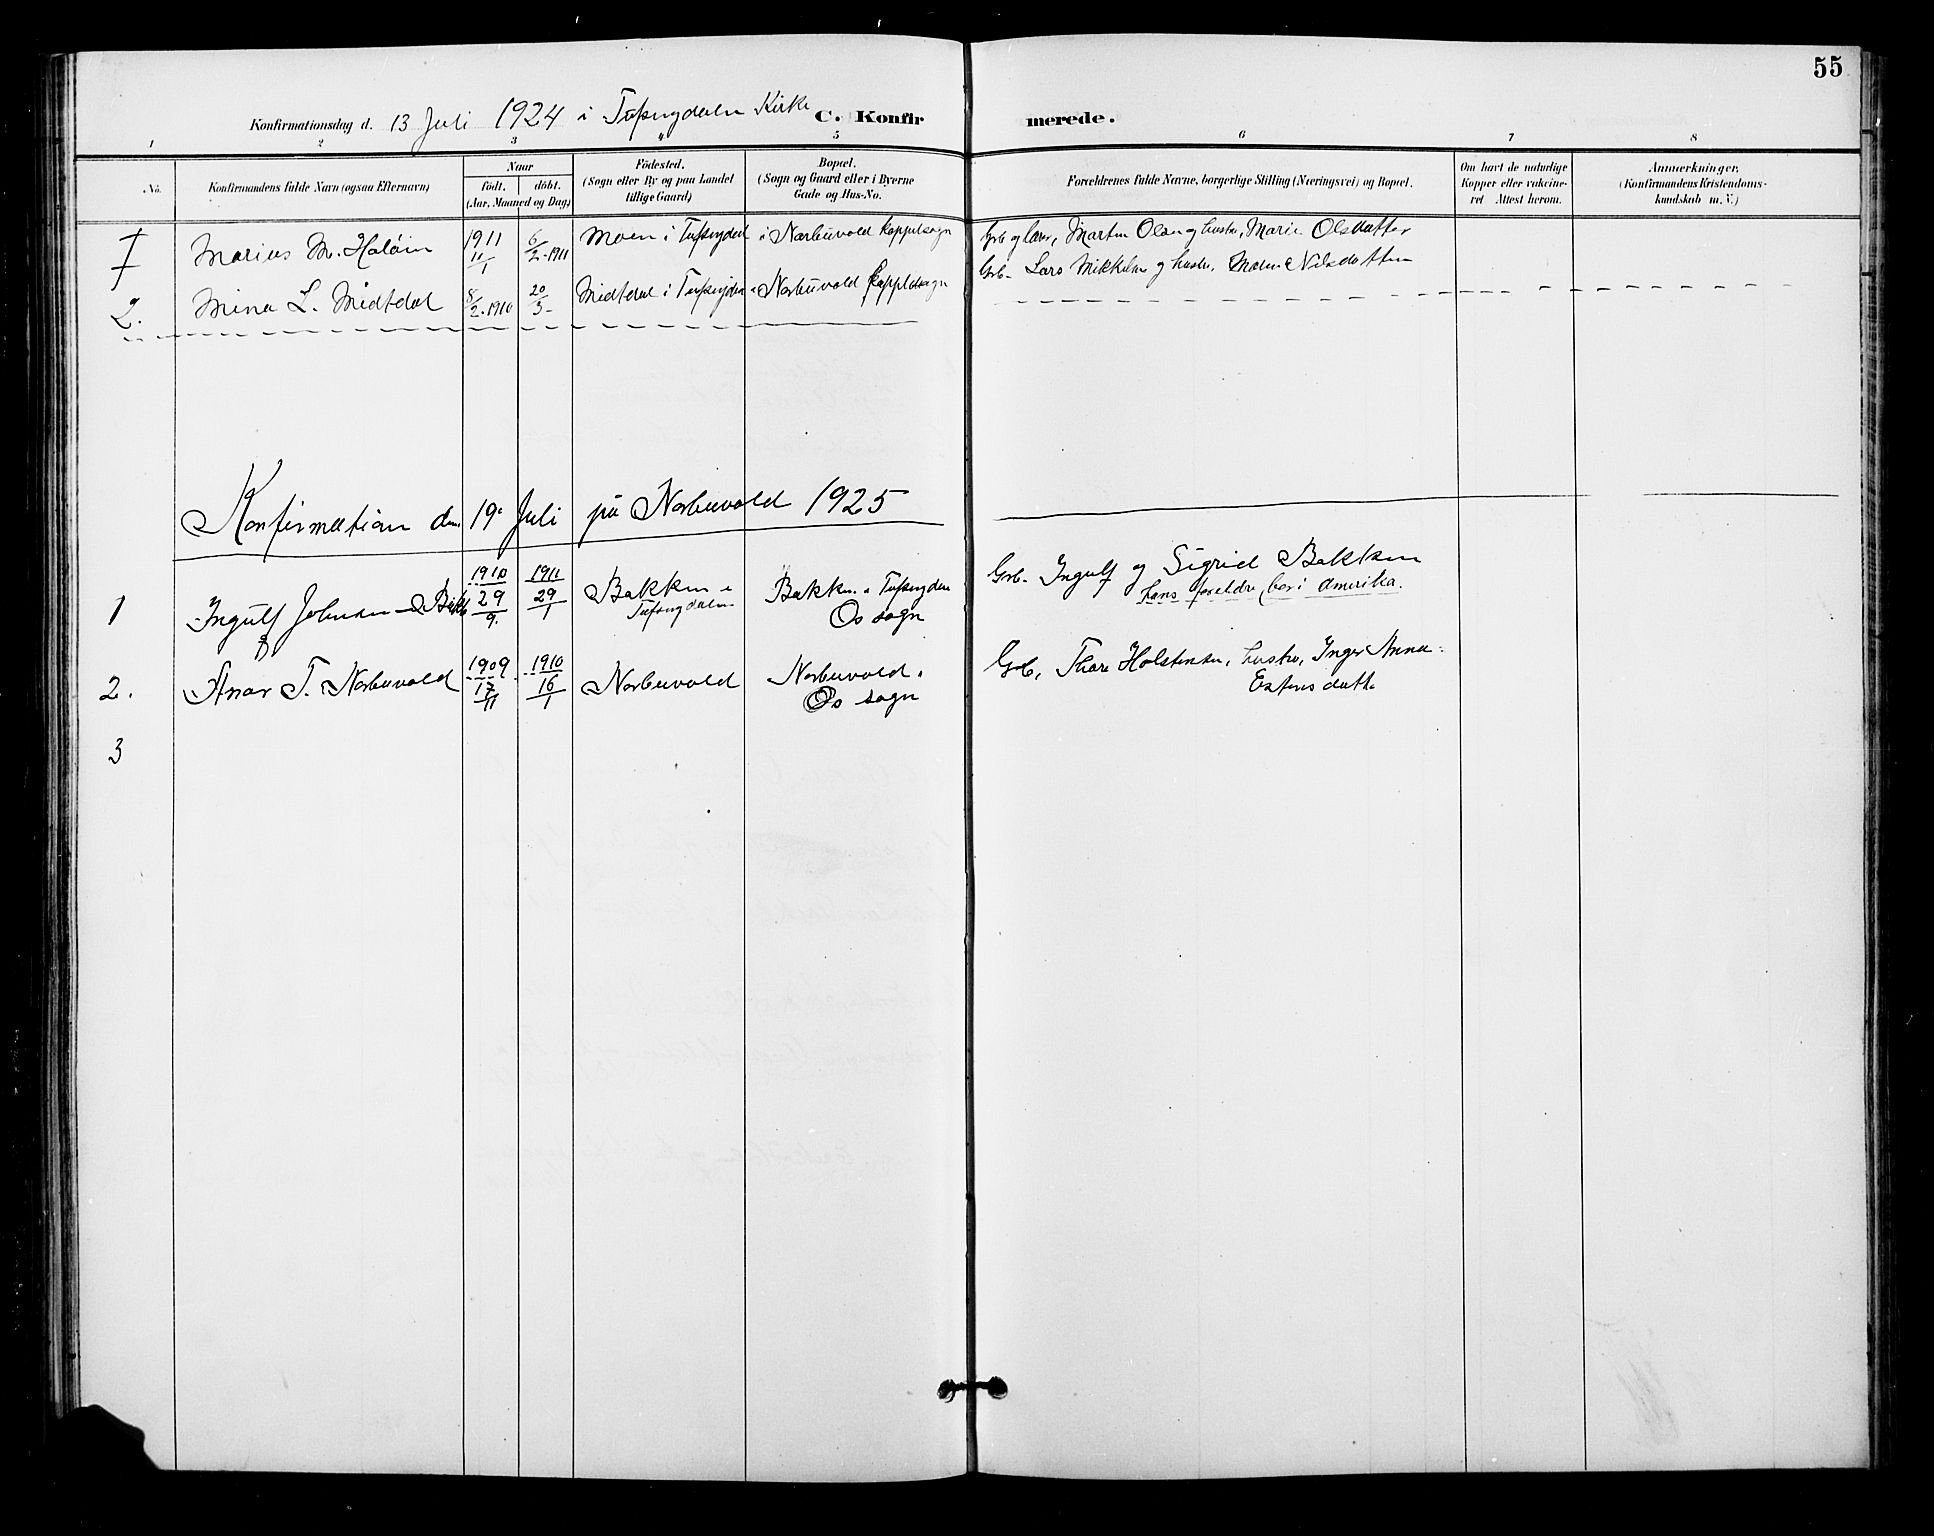 55
Konfirmationsdag d. 13 Juli 1924 i Tufsingdalen Kirke C. Konfirmerede.
1 2 3 4 5 6 7 8
No.
Konfirmandens fulde Navn (ogsaa Efternavn)
Naar
födt. döbt.
(Aar, Maaned og Dag)
Födested.
(Sogn eller By og paa Landet
tillige Gaard)
Bopæl.
(Sogn og Gaard eller i Byerne
Gade og Hus-No.
Forældrenes fulde Navne, borgerlige Stilling (Næringsvei) og Bopæl.
Om havt de naturlige
Kopper eller vakcine-
ret Attest herom.
Anmærkninger,
(Konfirmandens Kristendoms-
kundskab m. V.)
I Marius M. Haloin 1911 11/1 6/2-1911 Moen i Tufsingdal i Narbuvold kappelsogn Grb og lærer, Martin Olsen og hustru, Marie Olsdatter
2. Mina L. Midtdal 8/2-1910 20/3- Midtdal i Tufsingdal Narbuvold kappelsogn Grb. Lars Mikkelsen og hustr. Malen Nilsdatter
Konfirmation den 19. Juli på Narbuvold 1925
1 Ingulf Johnsen 1910 29/9. 1911 29/1 Bakken i Tufsingdalen Bakken i Tufsingdalen Os sogn Grb. Ingulf og Sigrid Bakken
hans foreldre bor i Amerika.
2. T. Narbuvold 1909 17/11 1910 16/1 Narbuvold Narbuvold. Os sogn Grb. Thore Holstensen, hustru, Inger Anna
Estensdatt.
3